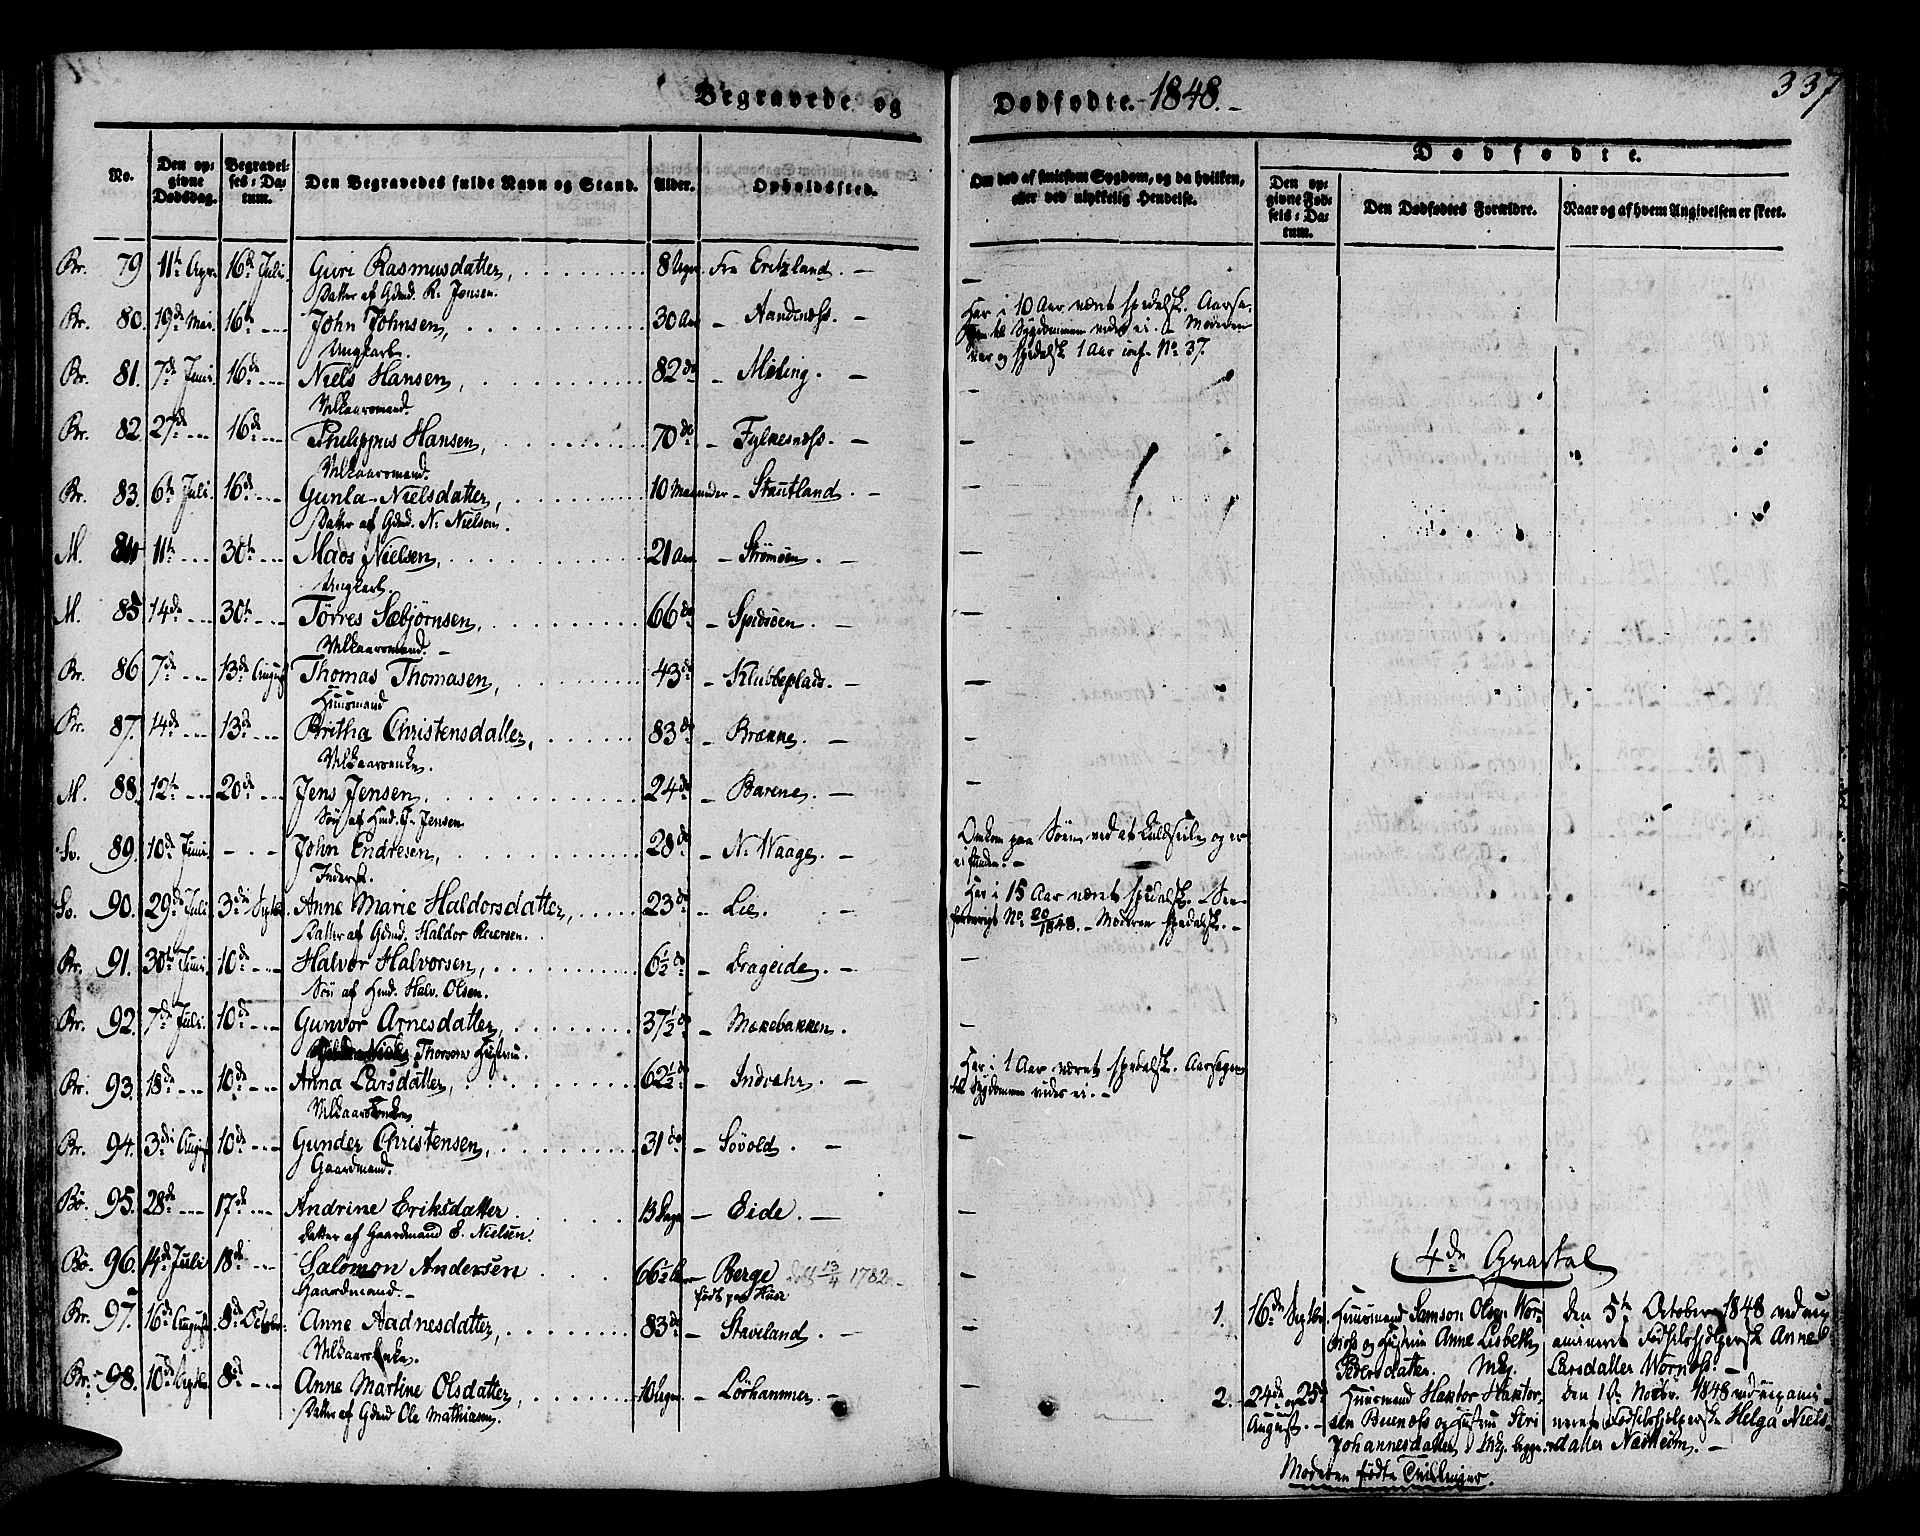 Begravede og
Dødfødte. 1848. -
337
No.
Den opgivne Dødsdag.
Begravelses-Datum.
Den Begravedes fulde Navn og Stand.
Alder.
Opholdssted.
Om død af smitsom Sygdom, og da hvilken, eller ved ulykkelig Hendelse.
Dødfødte.
Den opgivne Fødsels-Datum.
Den Dødfødtes Forældre.
Naar og af hvem Angivelsen er skeet.
Br. 79 11te Apr. 16de Juli. Guri Rasmusdatter, 8 Uger. Fra Eritzland. -
Datter af Gdmd. R. Jensen.
Br. 80. 19de Mai. 16de John Johnsen, 30 Aar - Aandenæss. -
Ungkarl.
Har i 10 Aar været spedalsk. Aarsa-
gen til Sygdommen vides ei. - Moderen
var og spedalsk 1 Aar cnf. No. 37.
Br. 81. 7de Juni. 16de Niels Hansen, 82 do - Meling. -
Vilkaarsmand.
Br. 82. 27de 16de Philippus Hansen, 70 do - Fylkesnæss. -
Vilkaarsmand.
Br. 83. 6te Juli. 16de Gunla Nielsdatter, 10 Maaneder - Stautland. -
Datter af Gdmd. N. Nielsen.
M. 84. 11te 30te Mads Nielsen, 21 Aar - Strømøen -
Ungkarl.
M. 85 14de 30te Tørres Sæbjørnsen, 66 do - Spidsøen. -
Vilkaarsmand. -
Br. 86 7de 13de August Thomas Thomasen, 43 do - Klubbeplads. -
Huusmand
Br. 87. 14de 13de Britha Christensdatter, 83 do - Brække. -
Vilkaarsenke.
M. 88. 12te 20de Jens Jensen, 24 do - Barene. -
Søn af Hmd. J. Jensen
Sv. 89. 10de Juni. - - John Endresen, 28 do - N. Waage. -
Inderst.
Omkom paa Søen ved at kuldseile og er
ei funden. -
Sv. 90. 29de Juli 3die Septbr. Anne Marie Haldorsdatter, 23 do - Lie. -
Datter af Gdmd. Haldor Reiersen.
Har i 15 Aar været spedalsk.
No. 20/1848. - Moderen spedalsk. -
Br. 91. 30te Juni. 10de Halvor Halvorsen, 6½ do - Drageide. -
Søn af Hmd. Halv. Olsen.
Br. 92. 7de Juli. 10de Gunvor Arnesdatter, 37½ do - Mækebakken.
Niels Thorsens Hustru.
Br. 93. 18de 10de Anna Larsdatter, 62½ do - Indvahr. -
Vilkaarsenke
Har i 1 Aar været spedalsk. Aarsagen
til Sygdommen vides ei. -
Br. 94. 3die August 10de Gunder Christensen, 31 do - Søvold. -
Gaardmand.
Bø. 95. 28de 17de Andrine Eriksdatter 13 Dage - Eide. -
Datter af Gaardmand E. Nielsen.
Bø. 96. 14de Juli 18de Salomon Andersen 66½ Aar - Berge døbt 13/4 1782. -
Gaardmand. - født paa Huse
4de Qvartal
Br. 97. 16de August 8de October. Anne Aadnesdatter, 83 do - Staveland. -
Vilkaarsenke.
Br. 98. 10de Septbr. 8de Anne Martine Olsdatter, 10 Uger. - Lørhammer. -
Datter af Gdmd Ole Mathiasen,
1. 16de Septbr. Huusmand Samson Olsen Wor-
næss og Hustru Anne Lisbeth
Pedersdatter. Mkj.
Den 5te October 1848 ved exa-
mineret Fødselshjelperske Anne
Larsdatter Wornæss. -
2. 24de og 25de August. Huusmand Haktor Haktor-
sen Buenæss og Hustru Siri
Johannesdatter, Mkj. begge.
Den 1ste Novbr. 1848 ved exami-
neret Fødselshjelperske Helga Niels-
datter Nædheim. -
Moderen fødte Tvillinger.